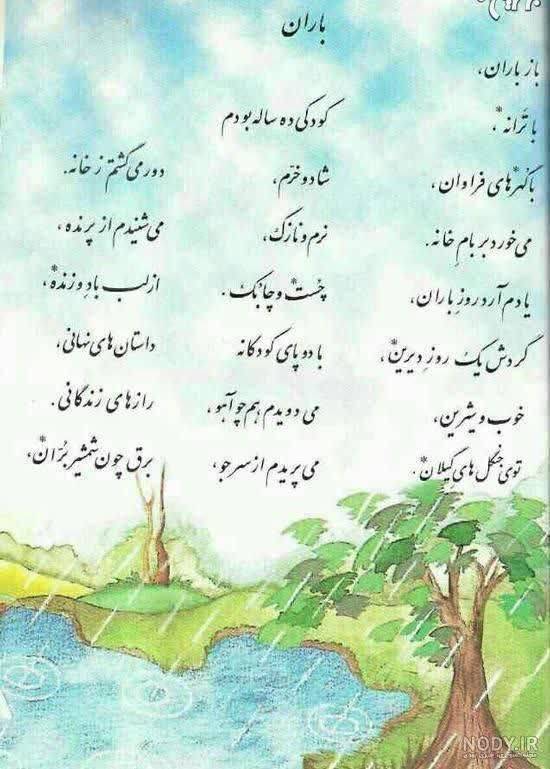 باران
باز باران،
با تَرانه*،
با گُهَر*های فراوان،
می خورد بر بامِ خانه.
یادم آرد روزِ باران،
گردش یک روزِ دیرین*،
خوب و شیرین،
توی جنگل های گیلان*.
کودکی ده ساله بودم
شاد و خرّم،
نرم و نازک،
چُست* و چابک.
با دو پای کودکانه
می دویدم هم چو آهو،
می پریدم از سرِ جو،
دور می گشتم ز خانه.
می شنیدم از پرنده،
از لب بادِ وزنده*،
داستان های نهانی،
رازهای زندگانی.
برق چون شمشیر بُرّان*،
NODY.IR